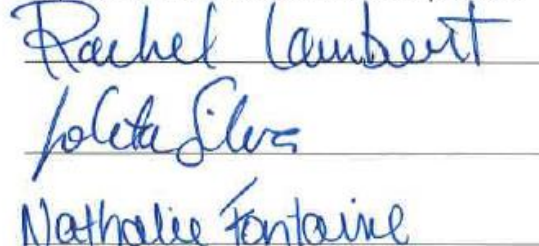 Rachel Lambert
Joleta Silva
Nathalie Fontaine